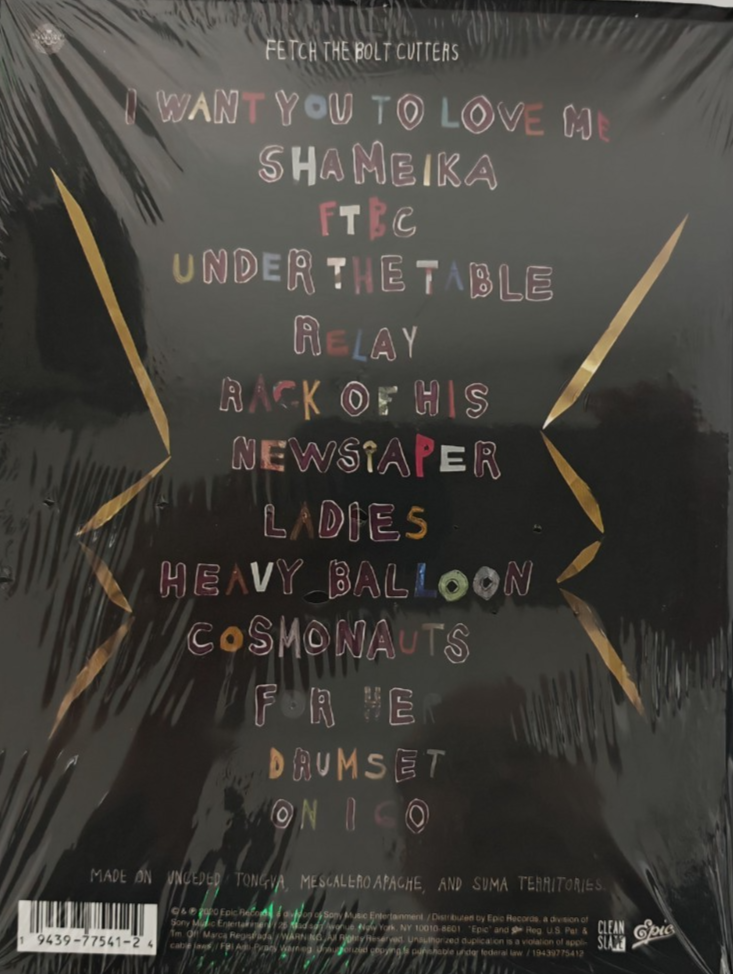 FETCH THE BOLT CUTTERS
I WANT YOU TO LOVE ME
SHAMEIKA
FTBC
UNDER THE TABLE
RELAY
RACK OF HIS
NEWSPAPER
LADIES
HEAVY BALLOON
COSMONAUTS
FOR HER
DRUMSET
ON I GO
MADE ON UNCEDED TONGVA, MESCALERO APACHE, AND SUMA TERRITORIES.
© & ℗ 2020 Epic Records, a division of Sony Music Entertainment. / Distributed by Epic Records, a division of
Sony Music Entertainment / 25 Madison Avenue, New York, NY 10010-8601 "Epic" and Reg. U.S. Pat. &
Tm. Off. Marca Registrada. / WARNING: All Rights Reserved. Unauthorized duplication is a violation of appli-
cable laws. / FBI Anti-Piracy Warning: Unauthorized copying is punishable under federal law. / 19439775412
CLEAN
SLATE
Epic
1 9439-77541-2 4